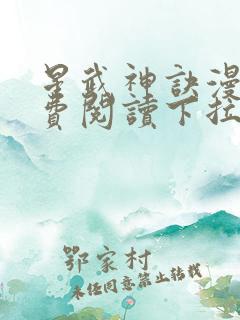 星武神訣漫
費閱讀下拉
鄂家村
未经同意禁止转载